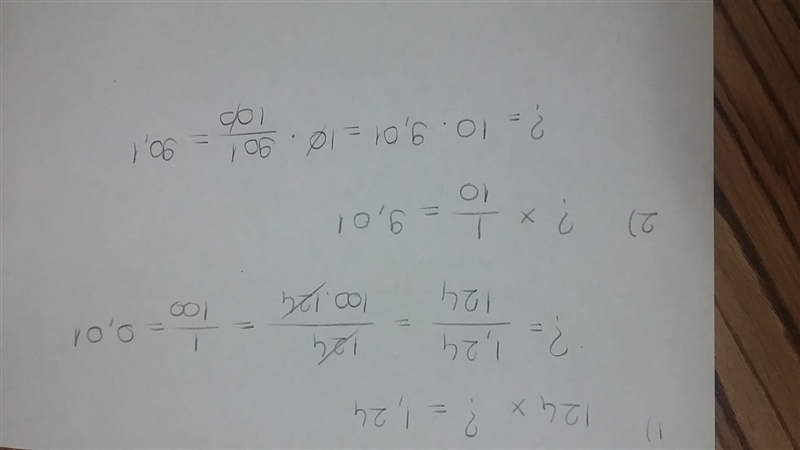 1) 124 × ? = 1,24
? = 1,24/124 = 124/100·124 = 1/100 = 0,01
2) ? × 1/10 = 9,01
? = 10 · 9,01 = 10 · 901/100 = 90,1